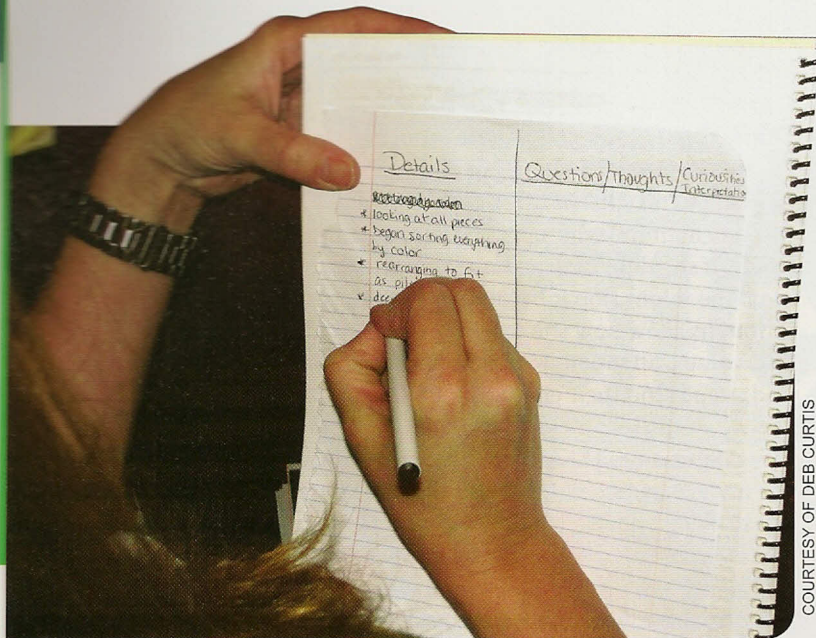 Details
Questions/Thoughts/Curiousities
Interpretatio
* looking at all pieces
* began sorting everything
by color
* rearranging to fit
as
*
COURTESY OF DEB CURTIS